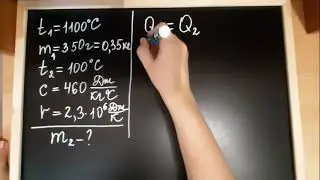 t₁ = 1100°C
m₁ = 350г = 0,35кг
t₂ = 100°C
c = 460 Дж/кг°C
r = 2,3·10⁶ Дж/к
m₂ - ?
Q = Q₂